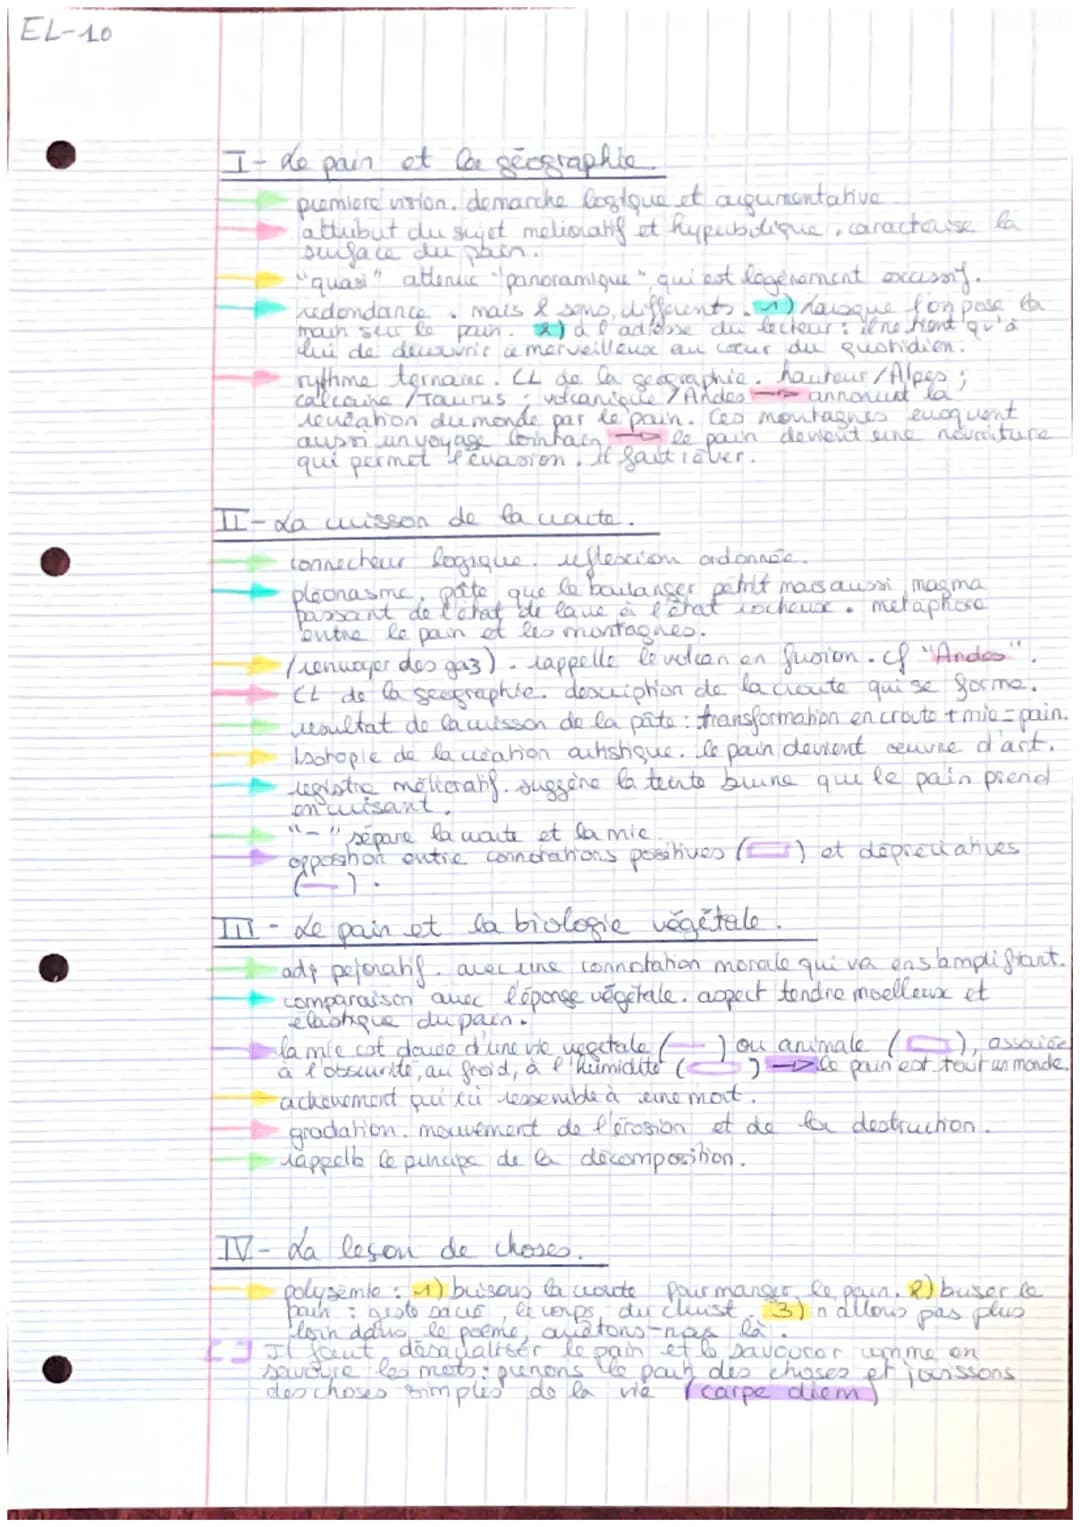 EL-10
I- Le pain et la géographie.
première vision. démarche logique et argumentative.
attribut du sujet mélioratif et hyperbolique, caractérise la
surface du pain.
"quasi" atténue "panoramique", qui est légèrement excessif.
redondance. mais 2 sens différents. 1) lorsque l'on pose la
main sur le pain. 2) à l'adresse du lecteur : il ne tient qu'à
lui de découvrir ce merveilleux au cœur du quotidien.
rythme ternaire. CL de la géographie. hauteur/Alpes ;
calcaire/Taurus ; volcanique/Andes → annoncent la
création du monde par le pain. Ces montagnes évoquent
aussi un voyage lointain → le pain devient une nourriture
qui permet l'évasion, il fait rêver.
II- La cuisson de la croûte.
connecteur logique. réflexion ordonnée.
pléonasme. pâte que le boulanger pétrit mais aussi magma
passant de l'état de lave à l'état rocheux. métaphore
entre le pain et les montagnes.
(renvoyer des gaz). rappelle le volcan en fusion. cf "Andes".
CL de la géographie. description de la croute qui se forme.
résultat de la cuisson de la pâte : transformation en croute + mie = pain.
Isotopie de la création artistique. le pain devient œuvre d'art.
registre mélioratif. suggère la teinte brune que le pain prend
en cuisant.
"-" sépare la croute et la mie.
opposition entre connotations positives ( ) et dépréciatives
(—).
III - Le pain et la biologie végétale.
adj péjoratif. avec une connotation morale qui va en s'amplifiant.
comparaison avec l'éponge végétale. aspect tendre moelleux et
élastique du pain.
la mie est douée d'une vie végétale (—) ou animale ( ), associée
à l'obscurité, au froid, à l'humidité ( ) → le pain est tout un monde.
achèvement qui ressemble à une mort.
gradation. mouvement de l'érosion et de la destruction.
rappelle le principe de la décomposition.
IV- La leçon de choses.
polysémie : 1) brisons la croute pour manger le pain. 2) briser le
pain : geste sacré, le corps du christ. 3) n'allons pas plus
loin dans le poème, arrêtons-nous là.
[ ] Il faut désacraliser le pain et le savourer comme on
savoure les mots : prenons le parti des choses et jouissons
des choses simples de la vie (carpe diem)